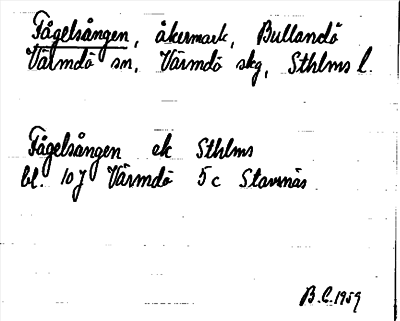 Fågelsången, åkermark, Bullandö
Värmdö sn, Värmdö skg, Sthlms l.
Fågelsången ek Sthlms
bl. 10 J Värmdö 5 c Stavsnäs
B.C. 1959